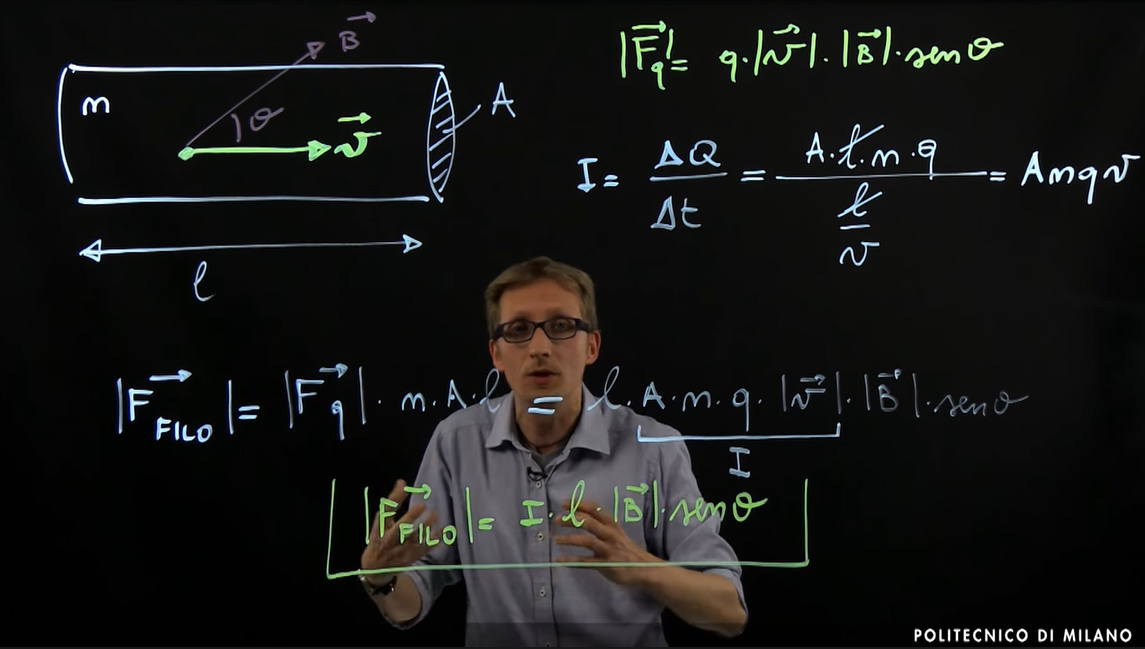 B⃗
n
θ
v⃗
A
l
|F⃗q| = q·|v⃗|·|B⃗|·sen θ
I = ΔQ/Δt = A·l·n·q / (l/v) = Anqv
|F⃗FILO| = |F⃗q|·n·A·l = l·A·n·q·|v⃗|·|B⃗|·sen θ
I
|F⃗FILO| = I·l·|B⃗|·sen θ
POLITECNICO DI MILANO